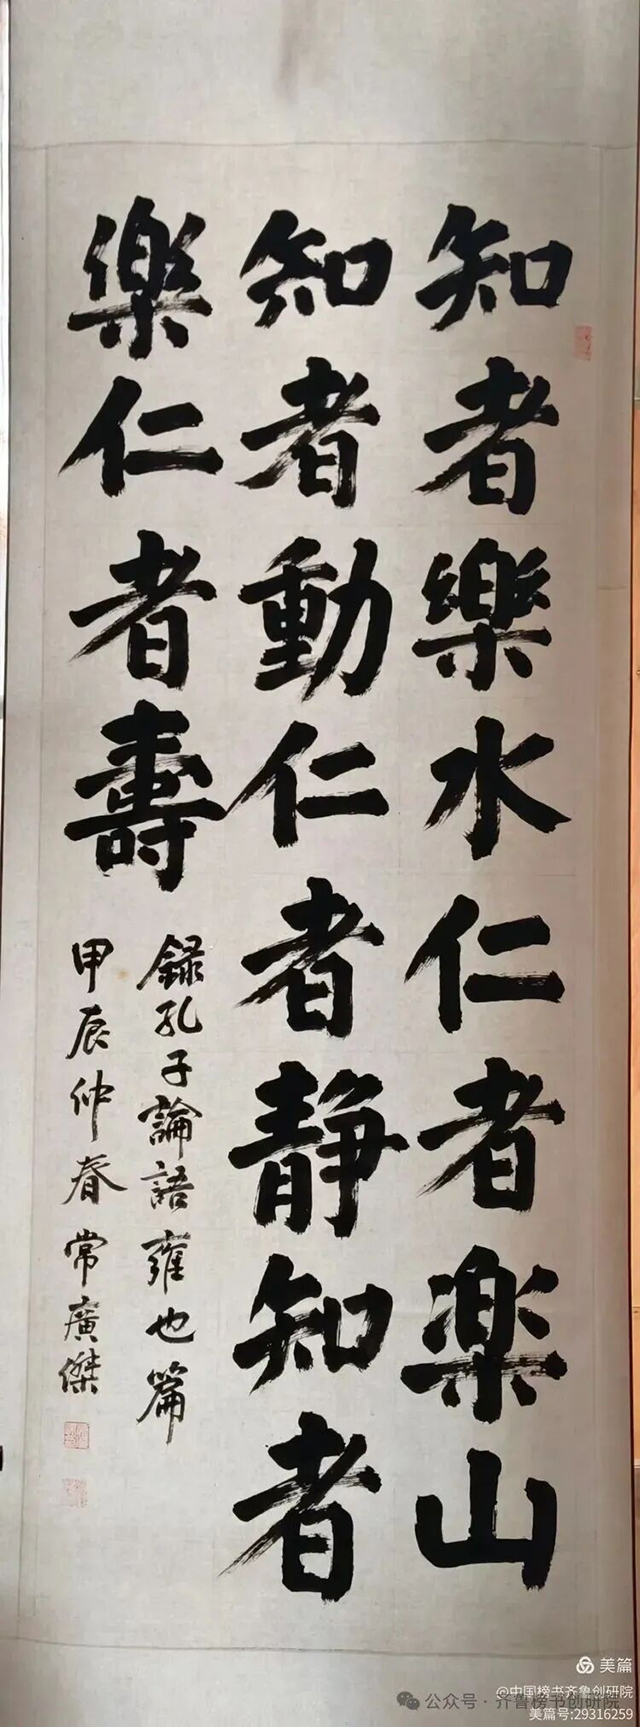 知者樂水仁者楽山
知者動仁者静知者
樂仁者壽
録孔子論語雍也篇
甲辰仲春常廣傑
美篇
@中国榜书齐鲁创研院
公众号·齐鲁榜书创研院
美篇号:29316259